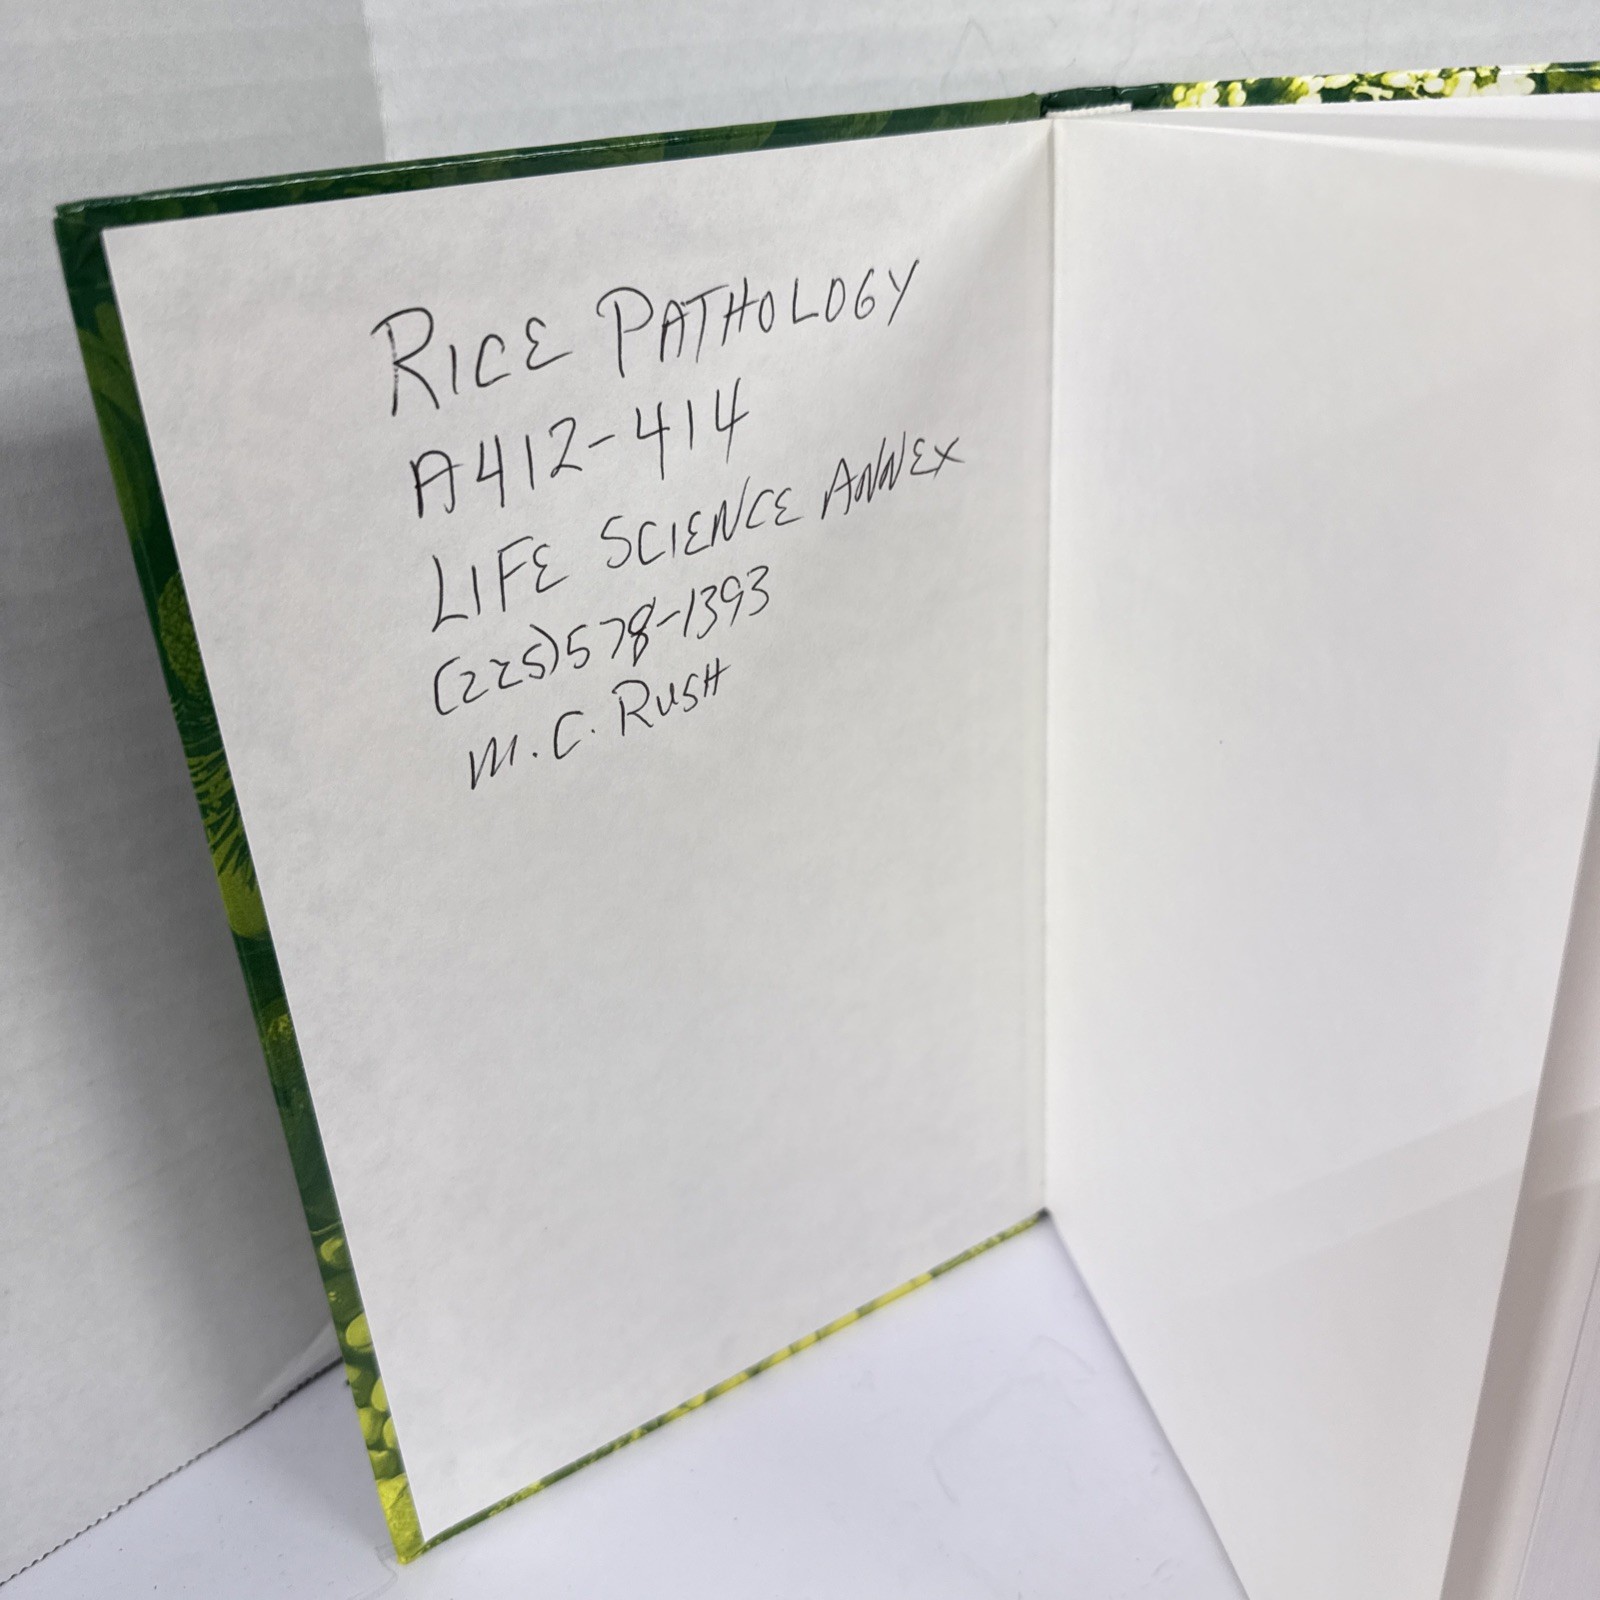 RICE PATHOLOGY
A412-414
LIFE SCIENCE ANNEX
(225)578-1393
M. C. RUSH